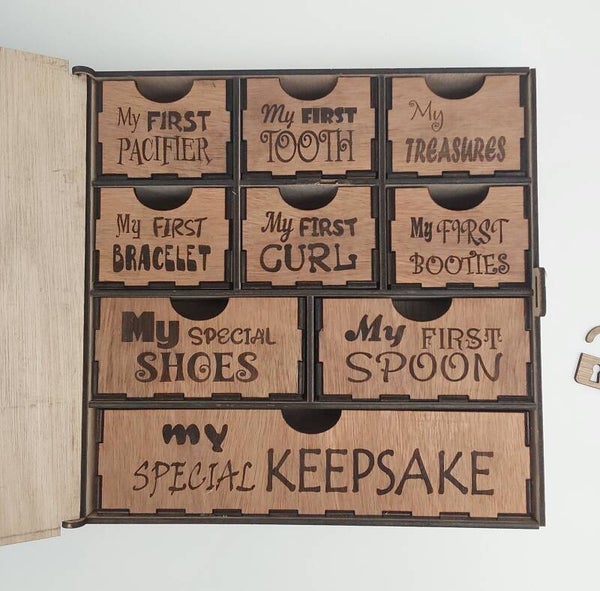 My FIRST
PACIFIER
My FIRST
TOOTH
My
TREASURES
My FIRST
BRACELET
My FIRST
CURL
My FIRST
BOOTIES
My SPECIAL
SHOES
My FIRST
SPOON
my
SPECIAL KEEPSAKE